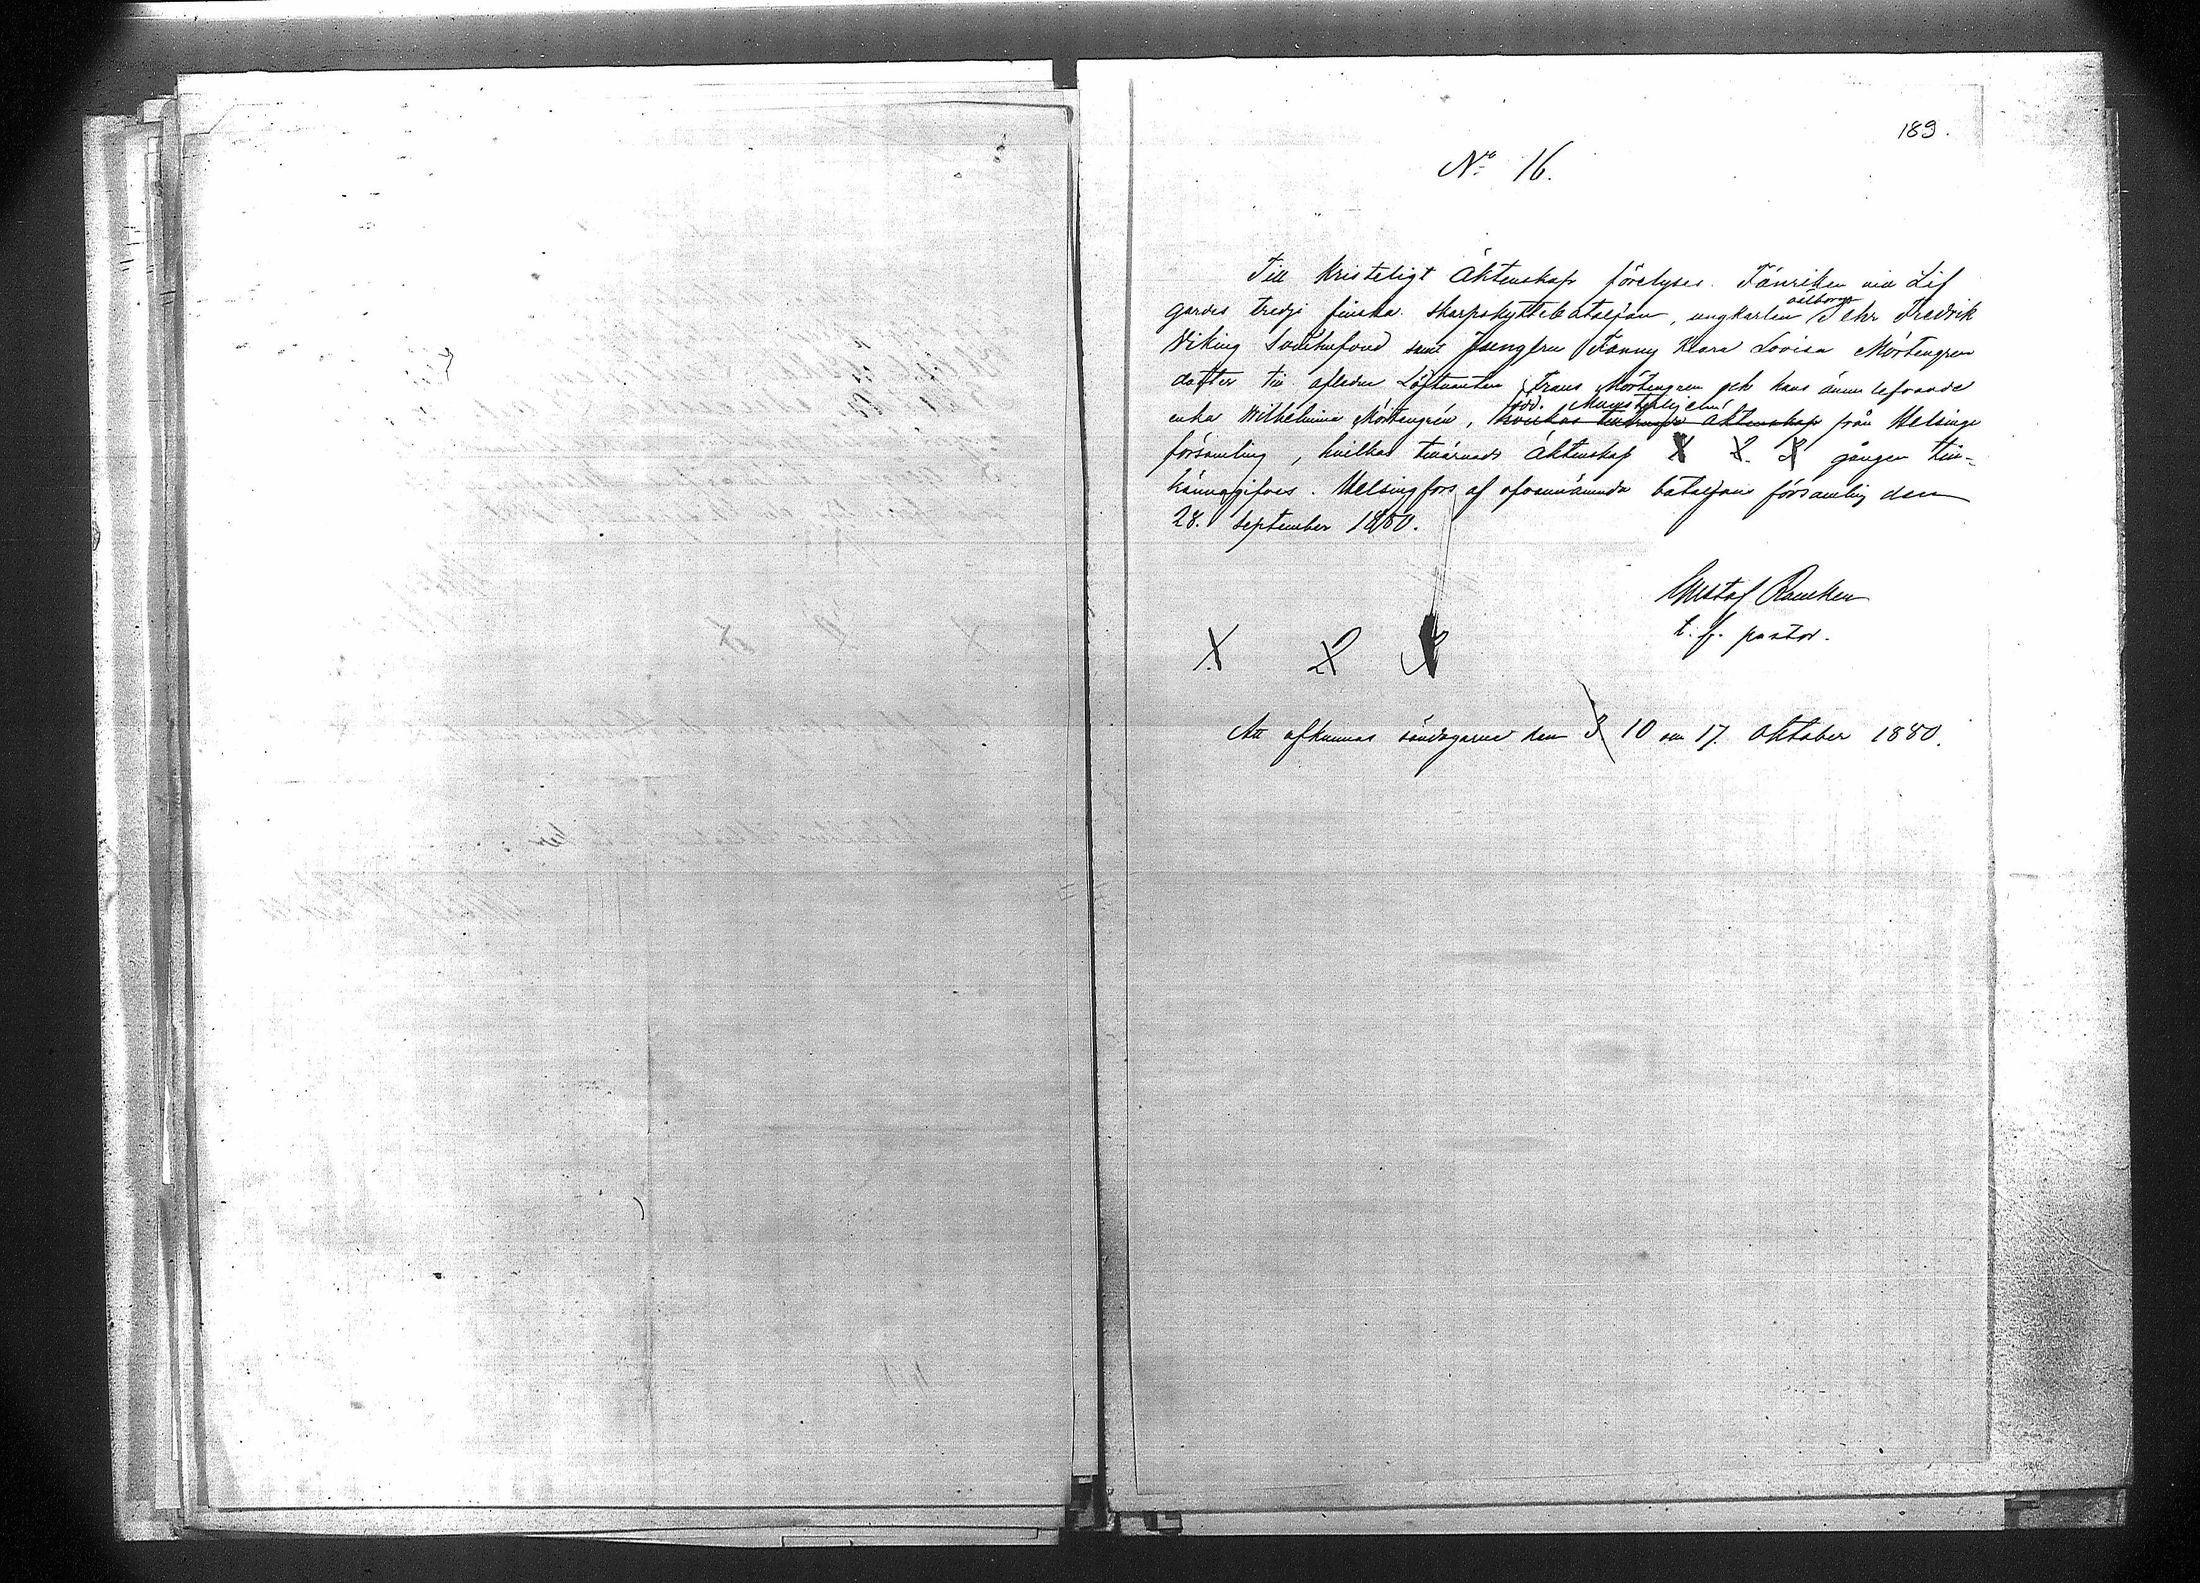 189.
No 16.
Till kristeligt Äktenskap förelyses Fänriken vid Lif
gardes tredje finska skarpskyttebataljon, ungkarlen välborne Pehr Fredrik
Viking Svinhufvud samt Jungfru Fanny Klara Lovisa Mörtengren
dotter till aflidne Löjtnanten Frans Mörtengren och hans ännu lefvande
enka Wilhelmina Mörtengrén, född Munsterhjelm hvilkas Äktenskap från Helsinge
församling, hvilkas tillärnade Äktenskap X 2. 3 gången till-
kännagifves. Helsingfors af ofvannämnda bataljons församling den
28. September 1880.
Gustaf Rancken
t. f. pastor.
1. 2 3
Att afkunnas söndagarne den 3 10 och 17. Oktober 1880.